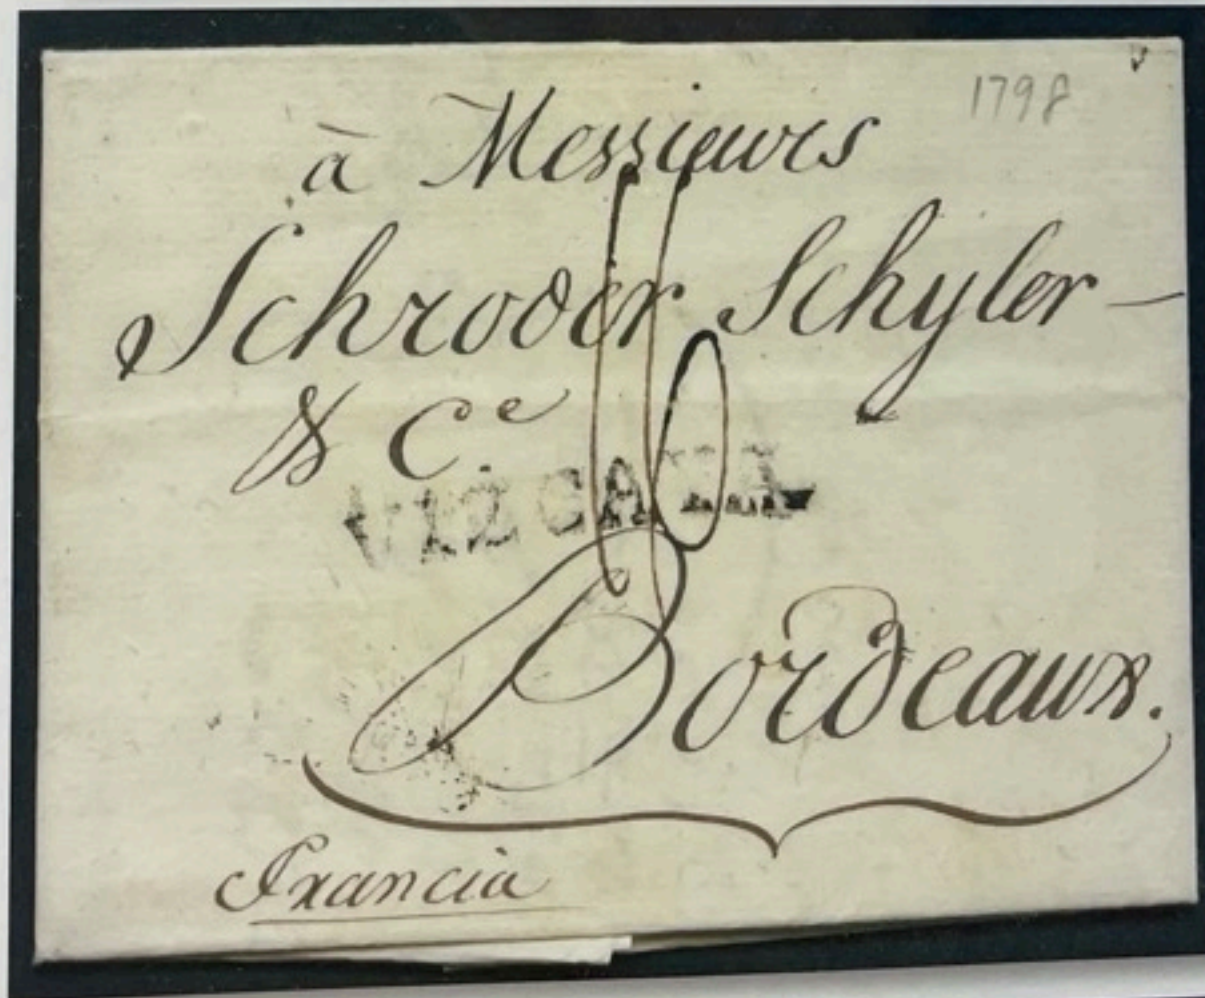 1798
à Messieurs
Schroder Schyler -
& Cᵉ.
VIZCAYA
Bordeaux.
Francia